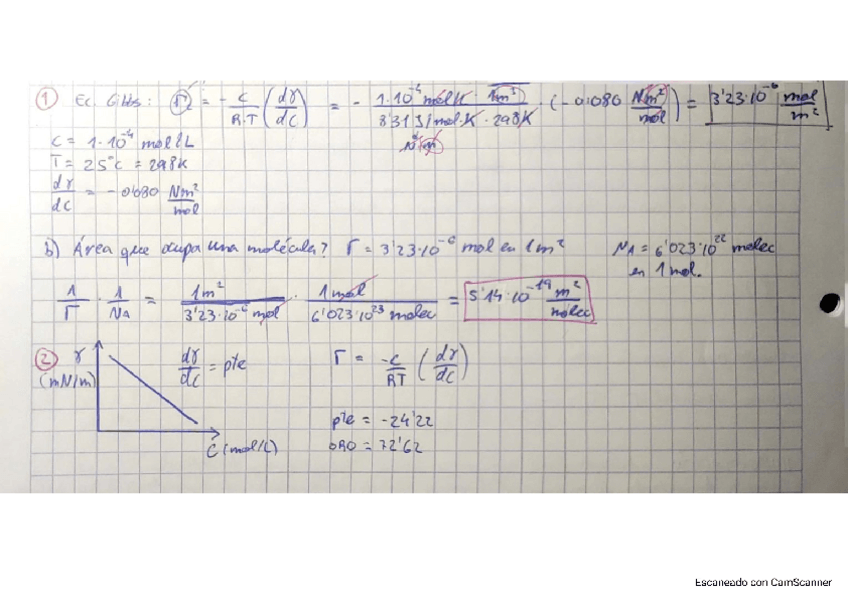 ① Ec. Gibbs: Γ = - c/R·T (dγ/dc) = - 1·10⁻⁴ mol/L · 1m³ / 8'31 J/mol·K · 298K · (-0'080 Nm²/mol) = 3'23·10⁻⁶ mol/m²
N·m
C = 1·10⁻⁴ mol/L
T = 25°C = 298K
dγ/dc = -0'080 Nm²/mol
b) Área que ocupa una molécula? Γ = 3'23·10⁻⁶ mol en 1m² NA = 6'023·10²² molec
en 1 mol.
1/Γ · 1/NA = 1m²/3'23·10⁻⁶ mol · 1 mol/6'023·10²³ molec = 5'14·10⁻¹⁹ m²/molec
② γ (mN/m) dγ/dc = pte Γ = -c/RT (dγ/dc)
pte = -24'22
C (mol/L) ORO = 72'62
Escaneado con CamScanner